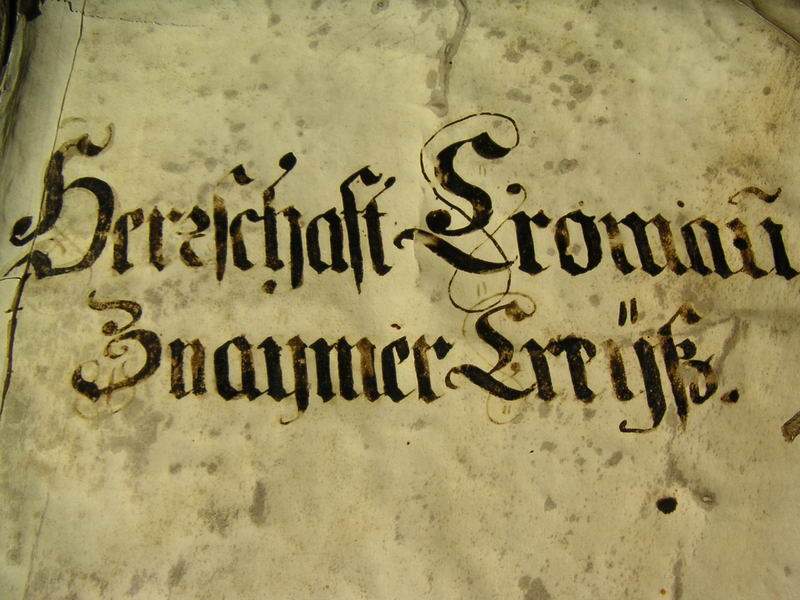 Herrschaft Cromau
Znaymer Creÿß.